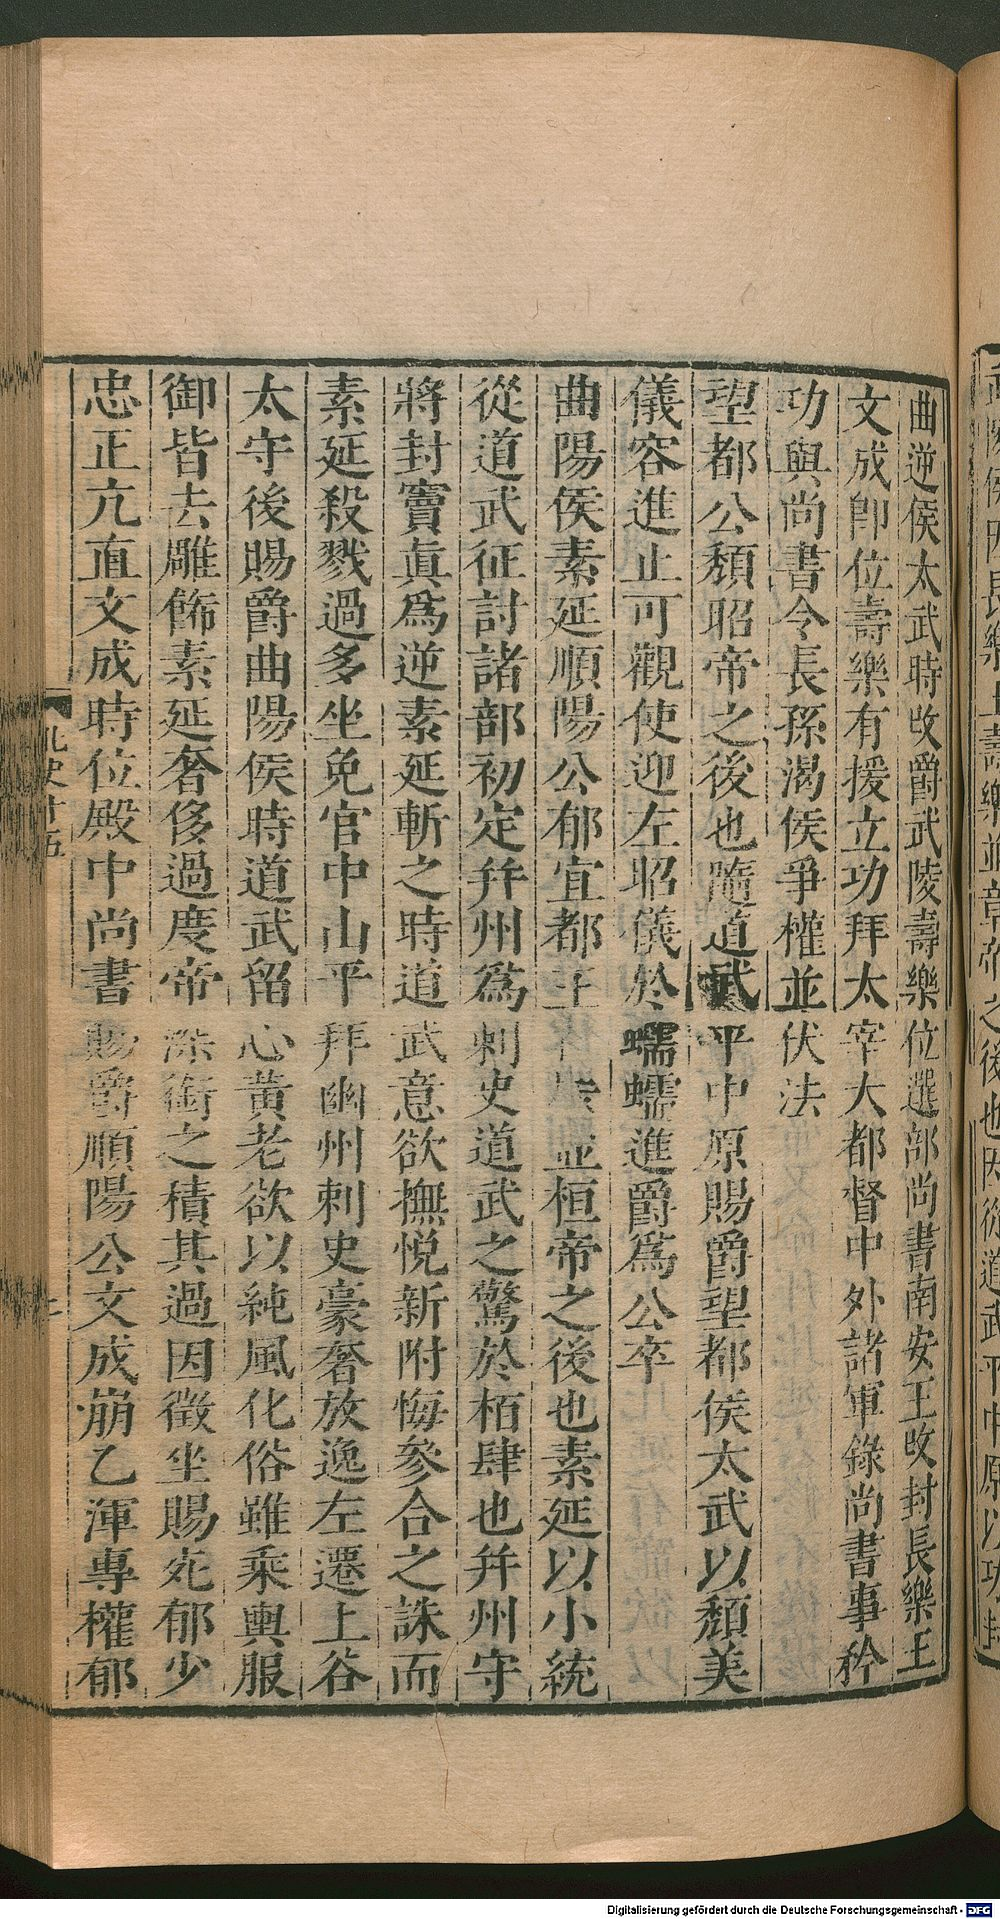 曲逆侯太武時改爵武陵壽樂位選部尚書南安王改封長樂王
文成卽位壽樂有援立功拜太宰大都督中外諸軍錄尚書事矜
功與尚書令長孫渴侯爭權並伏法
望都公頹昭帝之後也隨道武平中原賜爵望都侯太武以頹美
儀容進止可觀使迎左昭儀於蠕蠕進爵爲公卒
曲陽侯素延順陽公郁宜都王並桓帝之後也素延以小統
從道武征討諸部初定并州爲刺史道武之驚於栢肆也并州守
將封竇眞爲逆素延斬之時道武意欲撫悅新附悔參合之誅而
素延殺戮過多坐免官中山平拜幽州刺史豪奢放逸左遷上谷
太守後賜爵曲陽侯時道武留心黃老欲以純風化俗雖乘輿服
御皆去雕餙素延奢侈過度帝深銜之積其過因徵坐賜死郁少
忠正亢直文成時位殿中尚書賜爵順陽公文成崩乙渾專權郁
北史十五
Digitalisierung gefördert durch die Deutsche Forschungsgemeinschaft - DFG